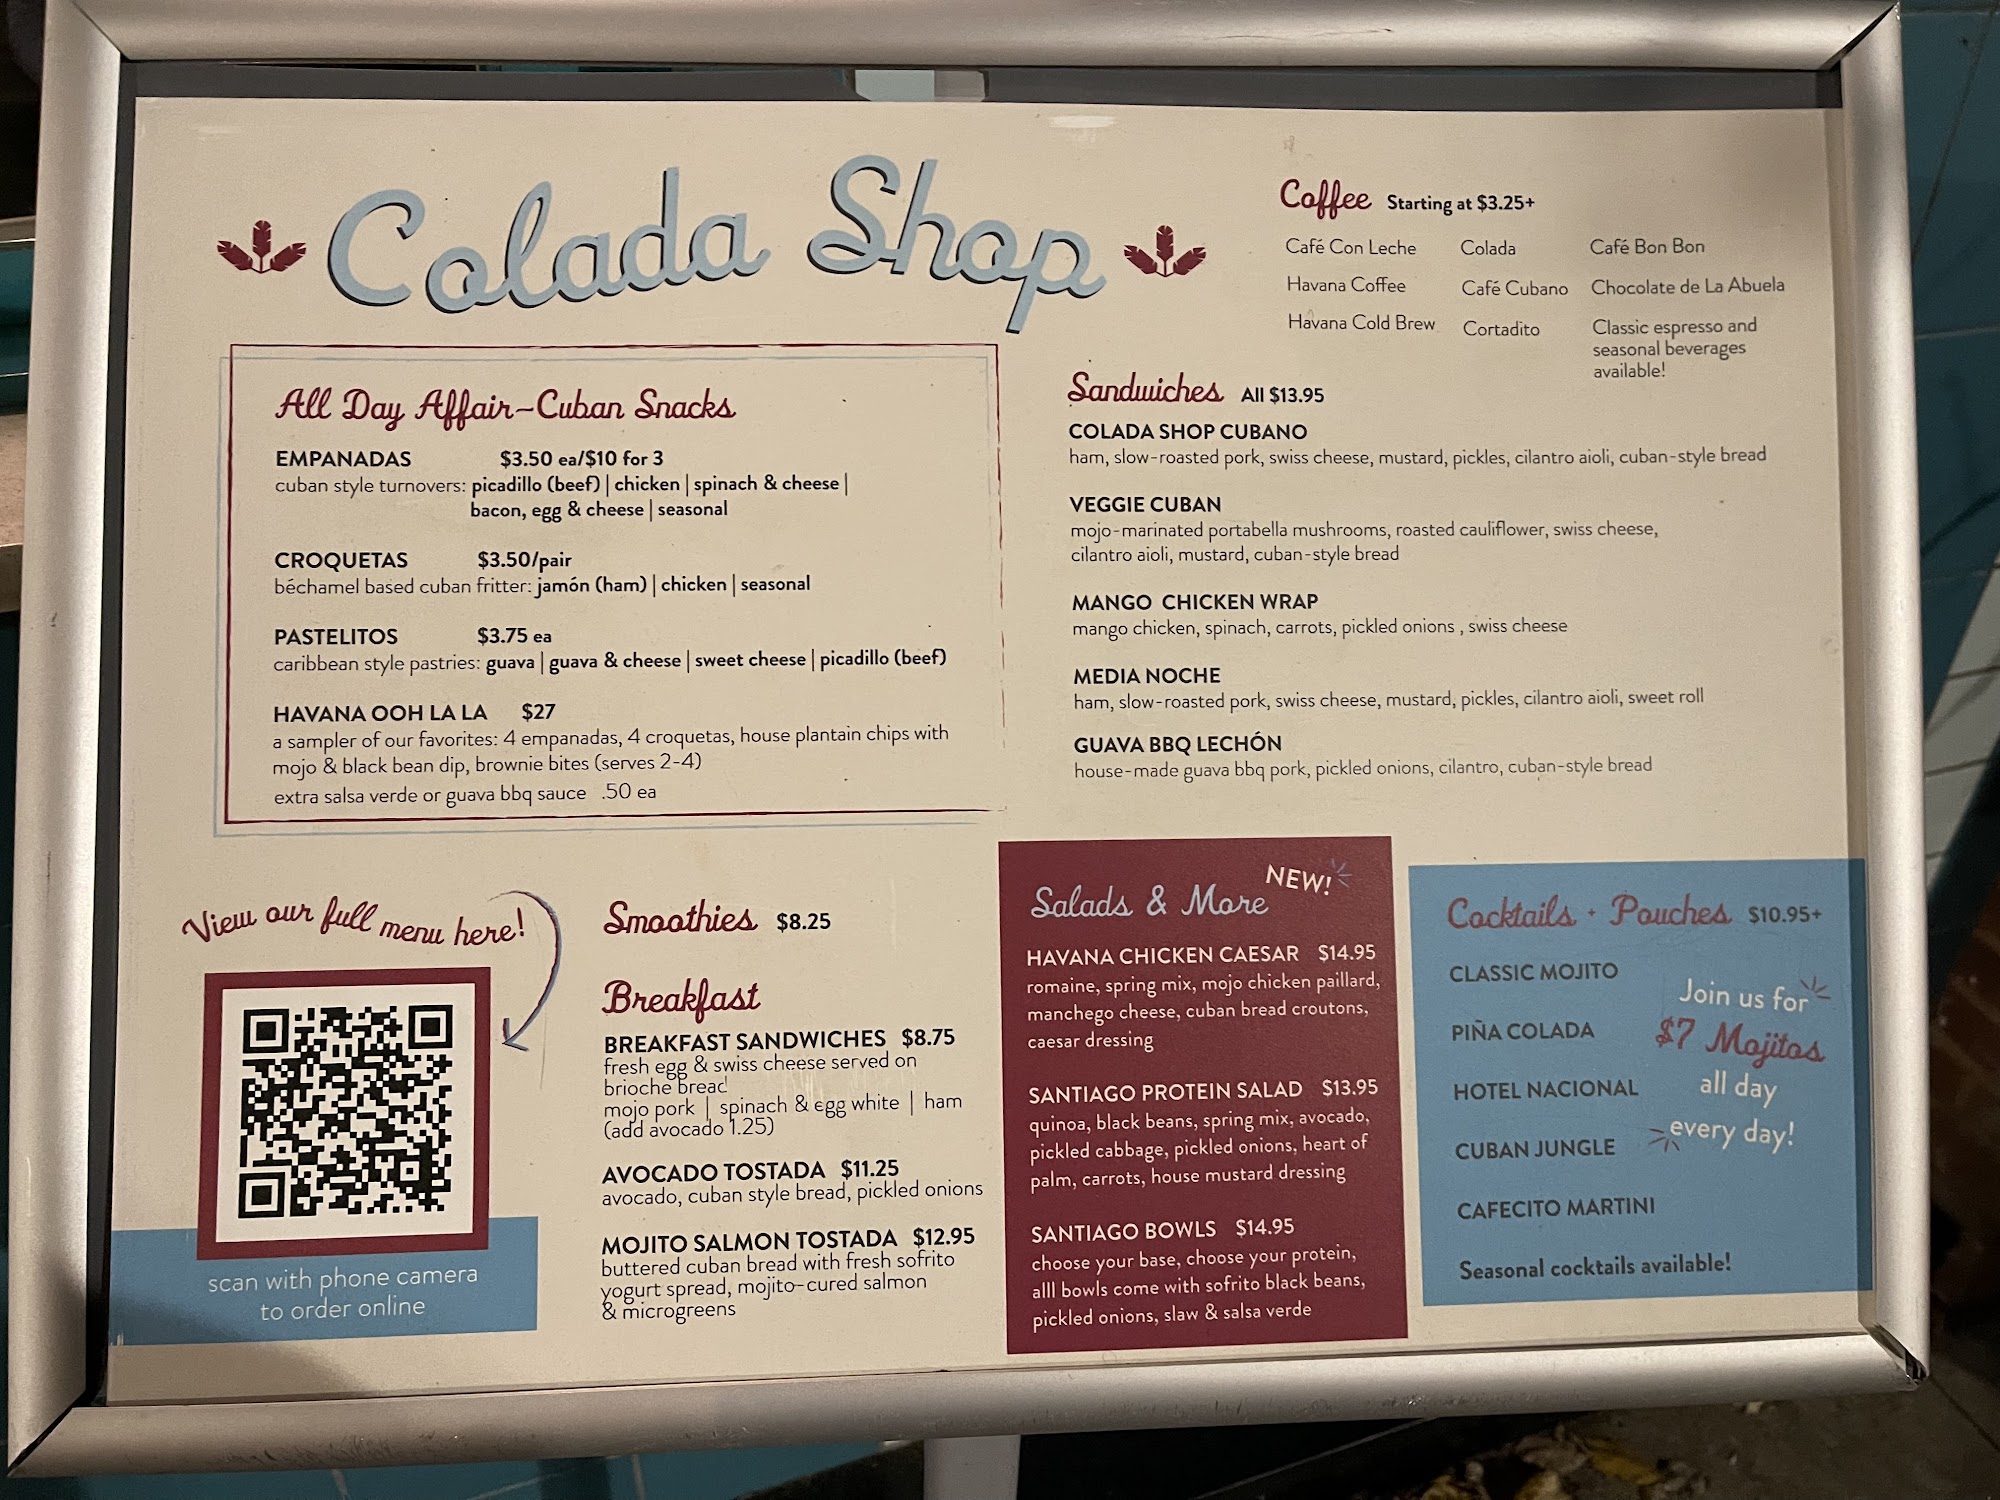 Colada Shop
Coffee Starting at $3.25+
Café Con Leche
Havana Coffee
Havana Cold Brew
Colada
Café Cubano
Cortadito
Café Bon Bon
Chocolate de La Abuela
Classic espresso and
seasonal beverages
available!
All Day Affair~Cuban Snacks
EMPANADAS $3.50 ea/$10 for 3
cuban style turnovers: picadillo (beef) | chicken | spinach & cheese |
bacon, egg & cheese | seasonal
CROQUETAS $3.50/pair
béchamel based cuban fritter: jamón (ham) | chicken | seasonal
PASTELITOS $3.75 ea
caribbean style pastries: guava | guava & cheese | sweet cheese | picadillo (beef)
HAVANA OOH LA LA $27
a sampler of our favorites: 4 empanadas, 4 croquetas, house plantain chips with
mojo & black bean dip, brownie bites (serves 2-4)
extra salsa verde or guava bbq sauce .50 ea
Sandwiches All $13.95
COLADA SHOP CUBANO
ham, slow-roasted pork, swiss cheese, mustard, pickles, cilantro aioli, cuban-style bread
VEGGIE CUBAN
mojo-marinated portabella mushrooms, roasted cauliflower, swiss cheese,
cilantro aioli, mustard, cuban-style bread
MANGO CHICKEN WRAP
mango chicken, spinach, carrots, pickled onions , swiss cheese
MEDIA NOCHE
ham, slow-roasted pork, swiss cheese, mustard, pickles, cilantro aioli, sweet roll
GUAVA BBQ LECHÓN
house-made guava bbq pork, pickled onions, cilantro, cuban-style bread
View our full menu here!
scan with phone camera
to order online
Smoothies $8.25
Breakfast
BREAKFAST SANDWICHES $8.75
fresh egg & swiss cheese served on
brioche bread
mojo pork | spinach & egg white | ham
(add avocado 1.25)
AVOCADO TOSTADA $11.25
avocado, cuban style bread, pickled onions
MOJITO SALMON TOSTADA $12.95
buttered cuban bread with fresh sofrito
yogurt spread, mojito-cured salmon
& microgreens
Salads & More NEW!
HAVANA CHICKEN CAESAR $14.95
romaine, spring mix, mojo chicken paillard,
manchego cheese, cuban bread croutons,
caesar dressing
SANTIAGO PROTEIN SALAD $13.95
quinoa, black beans, spring mix, avocado,
pickled cabbage, pickled onions, heart of
palm, carrots, house mustard dressing
SANTIAGO BOWLS $14.95
choose your base, choose your protein,
alll bowls come with sofrito black beans,
pickled onions, slaw & salsa verde
Cocktails + Pouches $10.95+
CLASSIC MOJITO
PIÑA COLADA
HOTEL NACIONAL
CUBAN JUNGLE
CAFECITO MARTINI
Seasonal cocktails available!
Join us for
$7 Mojitos
all day
every day!